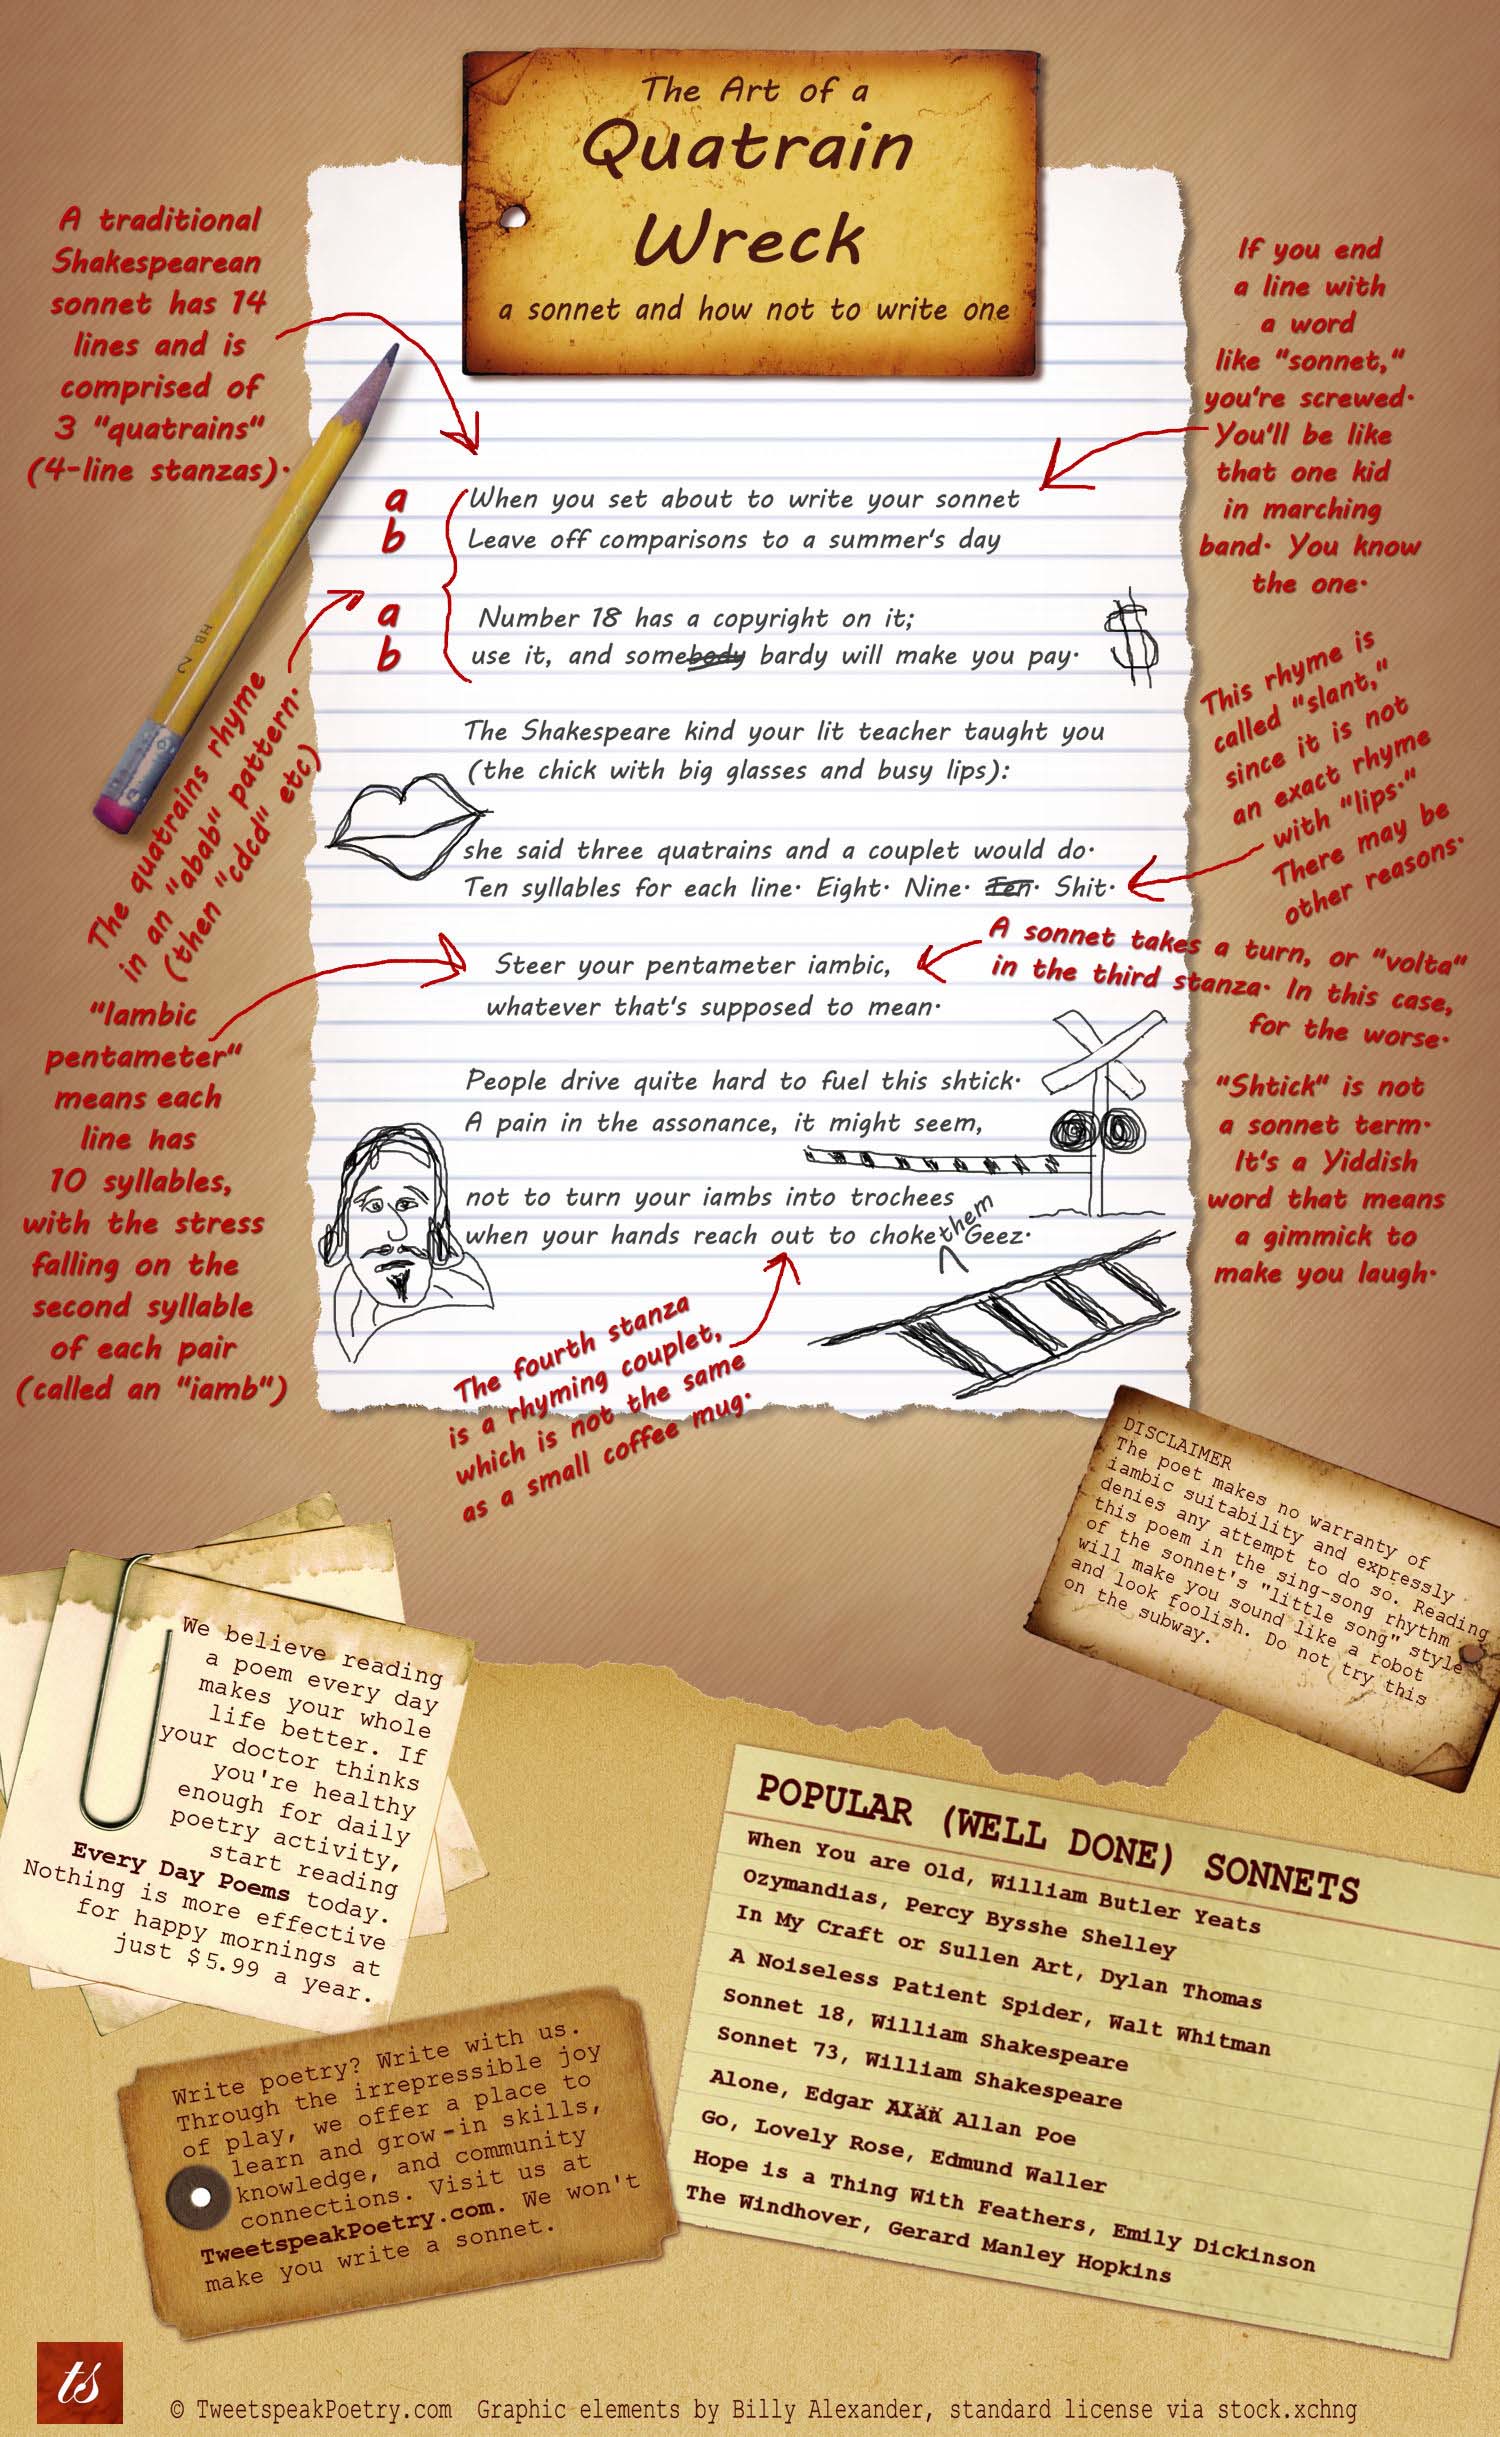 The Art of a
Quatrain
Wreck
a sonnet and how not to write one
A traditional
Shakespearean
sonnet has 14
lines and is
comprised of
3 "quatrains"
(4-line stanzas).
If you end
a line with
a word
like "sonnet,"
you're screwed.
You'll be like
that one kid
in marching
band. You know
the one.
a When you set about to write your sonnet
b Leave off comparisons to a summer's day
a Number 18 has a copyright on it;
b use it, and somebody bardy will make you pay.
$
HB 2
The quatrains rhyme
in an "abab" pattern.
(then "cdcd" etc)
The Shakespeare kind your lit teacher taught you
(the chick with big glasses and busy lips):
she said three quatrains and a couplet would do.
Ten syllables for each line. Eight. Nine. Ten. Shit.
This rhyme is
called "slant,"
since it is not
an exact rhyme
with "lips."
There may be
other reasons.
A sonnet takes a turn, or "volta"
in the third stanza. In this case,
for the worse.
Steer your pentameter iambic,
whatever that's supposed to mean.
"Iambic
pentameter"
means each
line has
10 syllables,
with the stress
falling on the
second syllable
of each pair
(called an "iamb")
People drive quite hard to fuel this shtick.
A pain in the assonance, it might seem,
"Shtick" is not
a sonnet term.
It's a Yiddish
word that means
a gimmick to
make you laugh.
not to turn your iambs into trochees
when your hands reach out to choke them Geez.
The fourth stanza
is a rhyming couplet,
which is not the same
as a small coffee mug.
DISCLAIMER
The poet makes no warranty of
iambic suitability and expressly
denies any attempt to do so. Reading
this poem in the sing-song rhythm
of the sonnet's "little song" style
will make you sound like a robot
and look foolish. Do not try this
on the subway.
We believe reading
a poem every day
makes your whole
life better. If
your doctor thinks
you're healthy
enough for daily
poetry activity,
start reading
Every Day Poems today.
Nothing is more effective
for happy mornings at
just $5.99 a year.
POPULAR (WELL DONE) SONNETS
When You are Old, William Butler Yeats
Ozymandias, Percy Bysshe Shelley
In My Craft or Sullen Art, Dylan Thomas
A Noiseless Patient Spider, Walt Whitman
Sonnet 18, William Shakespeare
Sonnet 73, William Shakespeare
Alone, Edgar Allan Poe
Go, Lovely Rose, Edmund Waller
Hope is a Thing With Feathers, Emily Dickinson
The Windhover, Gerard Manley Hopkins
Write poetry? Write with us.
Through the irrepressible joy
of play, we offer a place to
learn and grow-in skills,
knowledge, and community
connections. Visit us at
TweetspeakPoetry.com. We won't
make you write a sonnet.
ts
© TweetspeakPoetry.com Graphic elements by Billy Alexander, standard license via stock.xchng